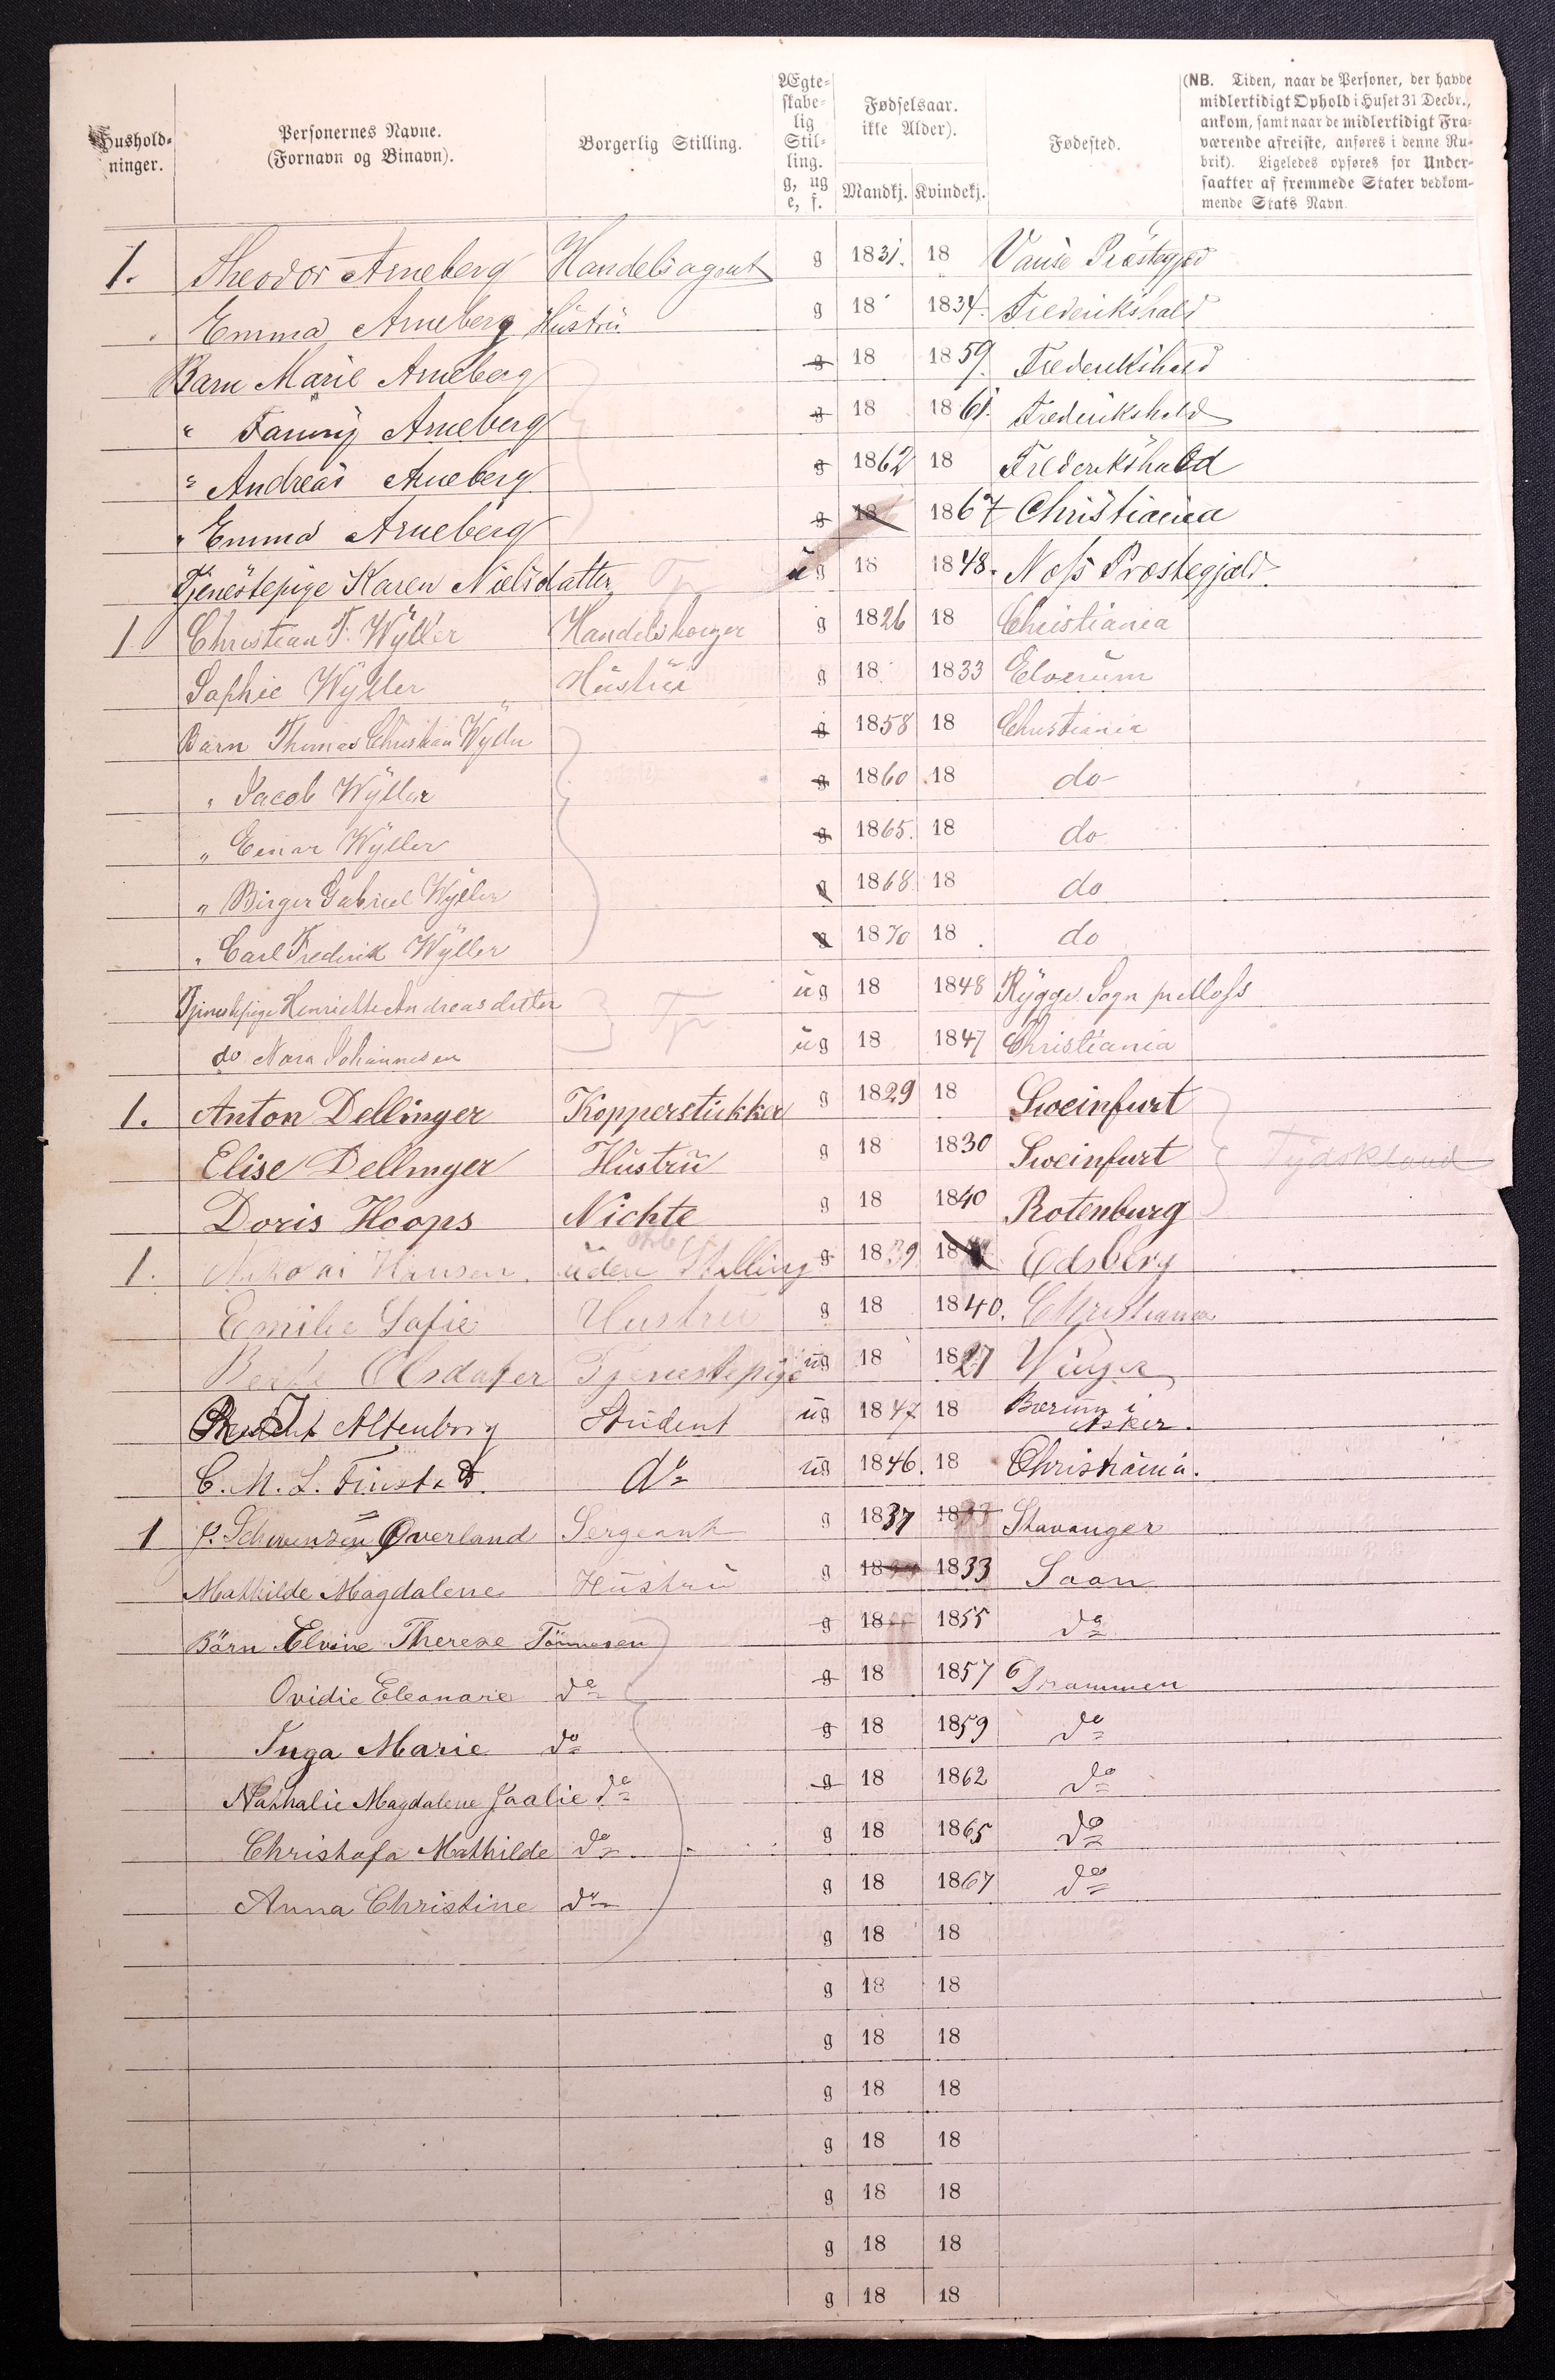 Hushold-
ninger.
Personernes Navne.
(Fornavn og Binavn).
Borgerlig Stilling.
Ægte-
skabe-
lig
Stil-
ling.
g, ug
e, f.
Fødselsaar.
ikke Alder).
Mandkj. Kvindekj.
Fødested.
(NB. Tiden, naar de Personer, der havde
midlertidigt Ophold i Huset 31 Decbr.,
ankom, samt naar de midlertidigt Fra-
værende afreiste, anføres i denne Ru-
brik). Ligeledes opføres for Under-
saatter af fremmede Stater vedkom-
mende Stats Navn.
1. Theodor Arneberg Handelsagent g 1831. 18 Vanse Præstegjed
Emma Arneberg Hustru g 18 1834. Frederikshald
Barn Marie Arneberg g 18 1859. Frederikshald
" Fanny Arneberg g 18 1861. Frederikshald
" Andreas Arneberg g 1862 18 Frederikshald
" Emma Arneberg g 18 1867 Christiania
Tjenestepige Karen Nielsdatter Tp ug 18 1848. Præstegjæld.
1 Christian F. Wyller Handelsborger g 1826 18 Christiania
Sophie Wyller Hustru g 18 1833 Elverum
Barn Thomas Christian Wyller g 1858 18 Christiania
" Jacob Wyller g 1860 18 do
" Einar Wyller g 1865. 18 do
" Birger Gabriel Wyller g 1868 18 do
" Carl Frederik Wyller g 1870 18 do
Tjenestepige Henriette Andreasdatter Tp ug 18 1848 Rygge Sogn pr Moss
do Nara Johannesen ug 18 1847 Christiania
1. Anton Dellinger Kopperstikker g 1829 18 Sweinfurt
Elise Dellinger Hustru g 18 1830 Sweinfurt Tydskland
Doris Hoops Nichte g 18 1840 Rotenburg
1. Nikolai Hansen. uden Stilling g 1839 18 Edsberg
Emilie Sofie Hustru g 18 1840. Christiania
Berte Olsdater Tjenestepige ug 18 1827 Vinger
Altenborg Student ug 1847 18 Bærum i
Asker.
C. M. L. Finstad. do ug 1846. 18 Christiania.
1 P. Schwenzen Qverland Sergeant g 1837 1833 Stavanger
Mathilde Magdalene Hustru g 18 1833 Saan
Börn Elvine Therese Tönnesen g 18 1855 do
Ovidie Eleonore do g 18 1857 Drammen
Inga Marie do g 18 1859 do
Nathalie Magdalene Jaalie do g 18 1862 do
Christofa Mathilde do g 18 1865 do
Anna Christine do g 18 1867 do
g 18 18
g 18 18
g 18 18
g 18 18
g 18 18
g 18 18
g 18 18
g 18 18